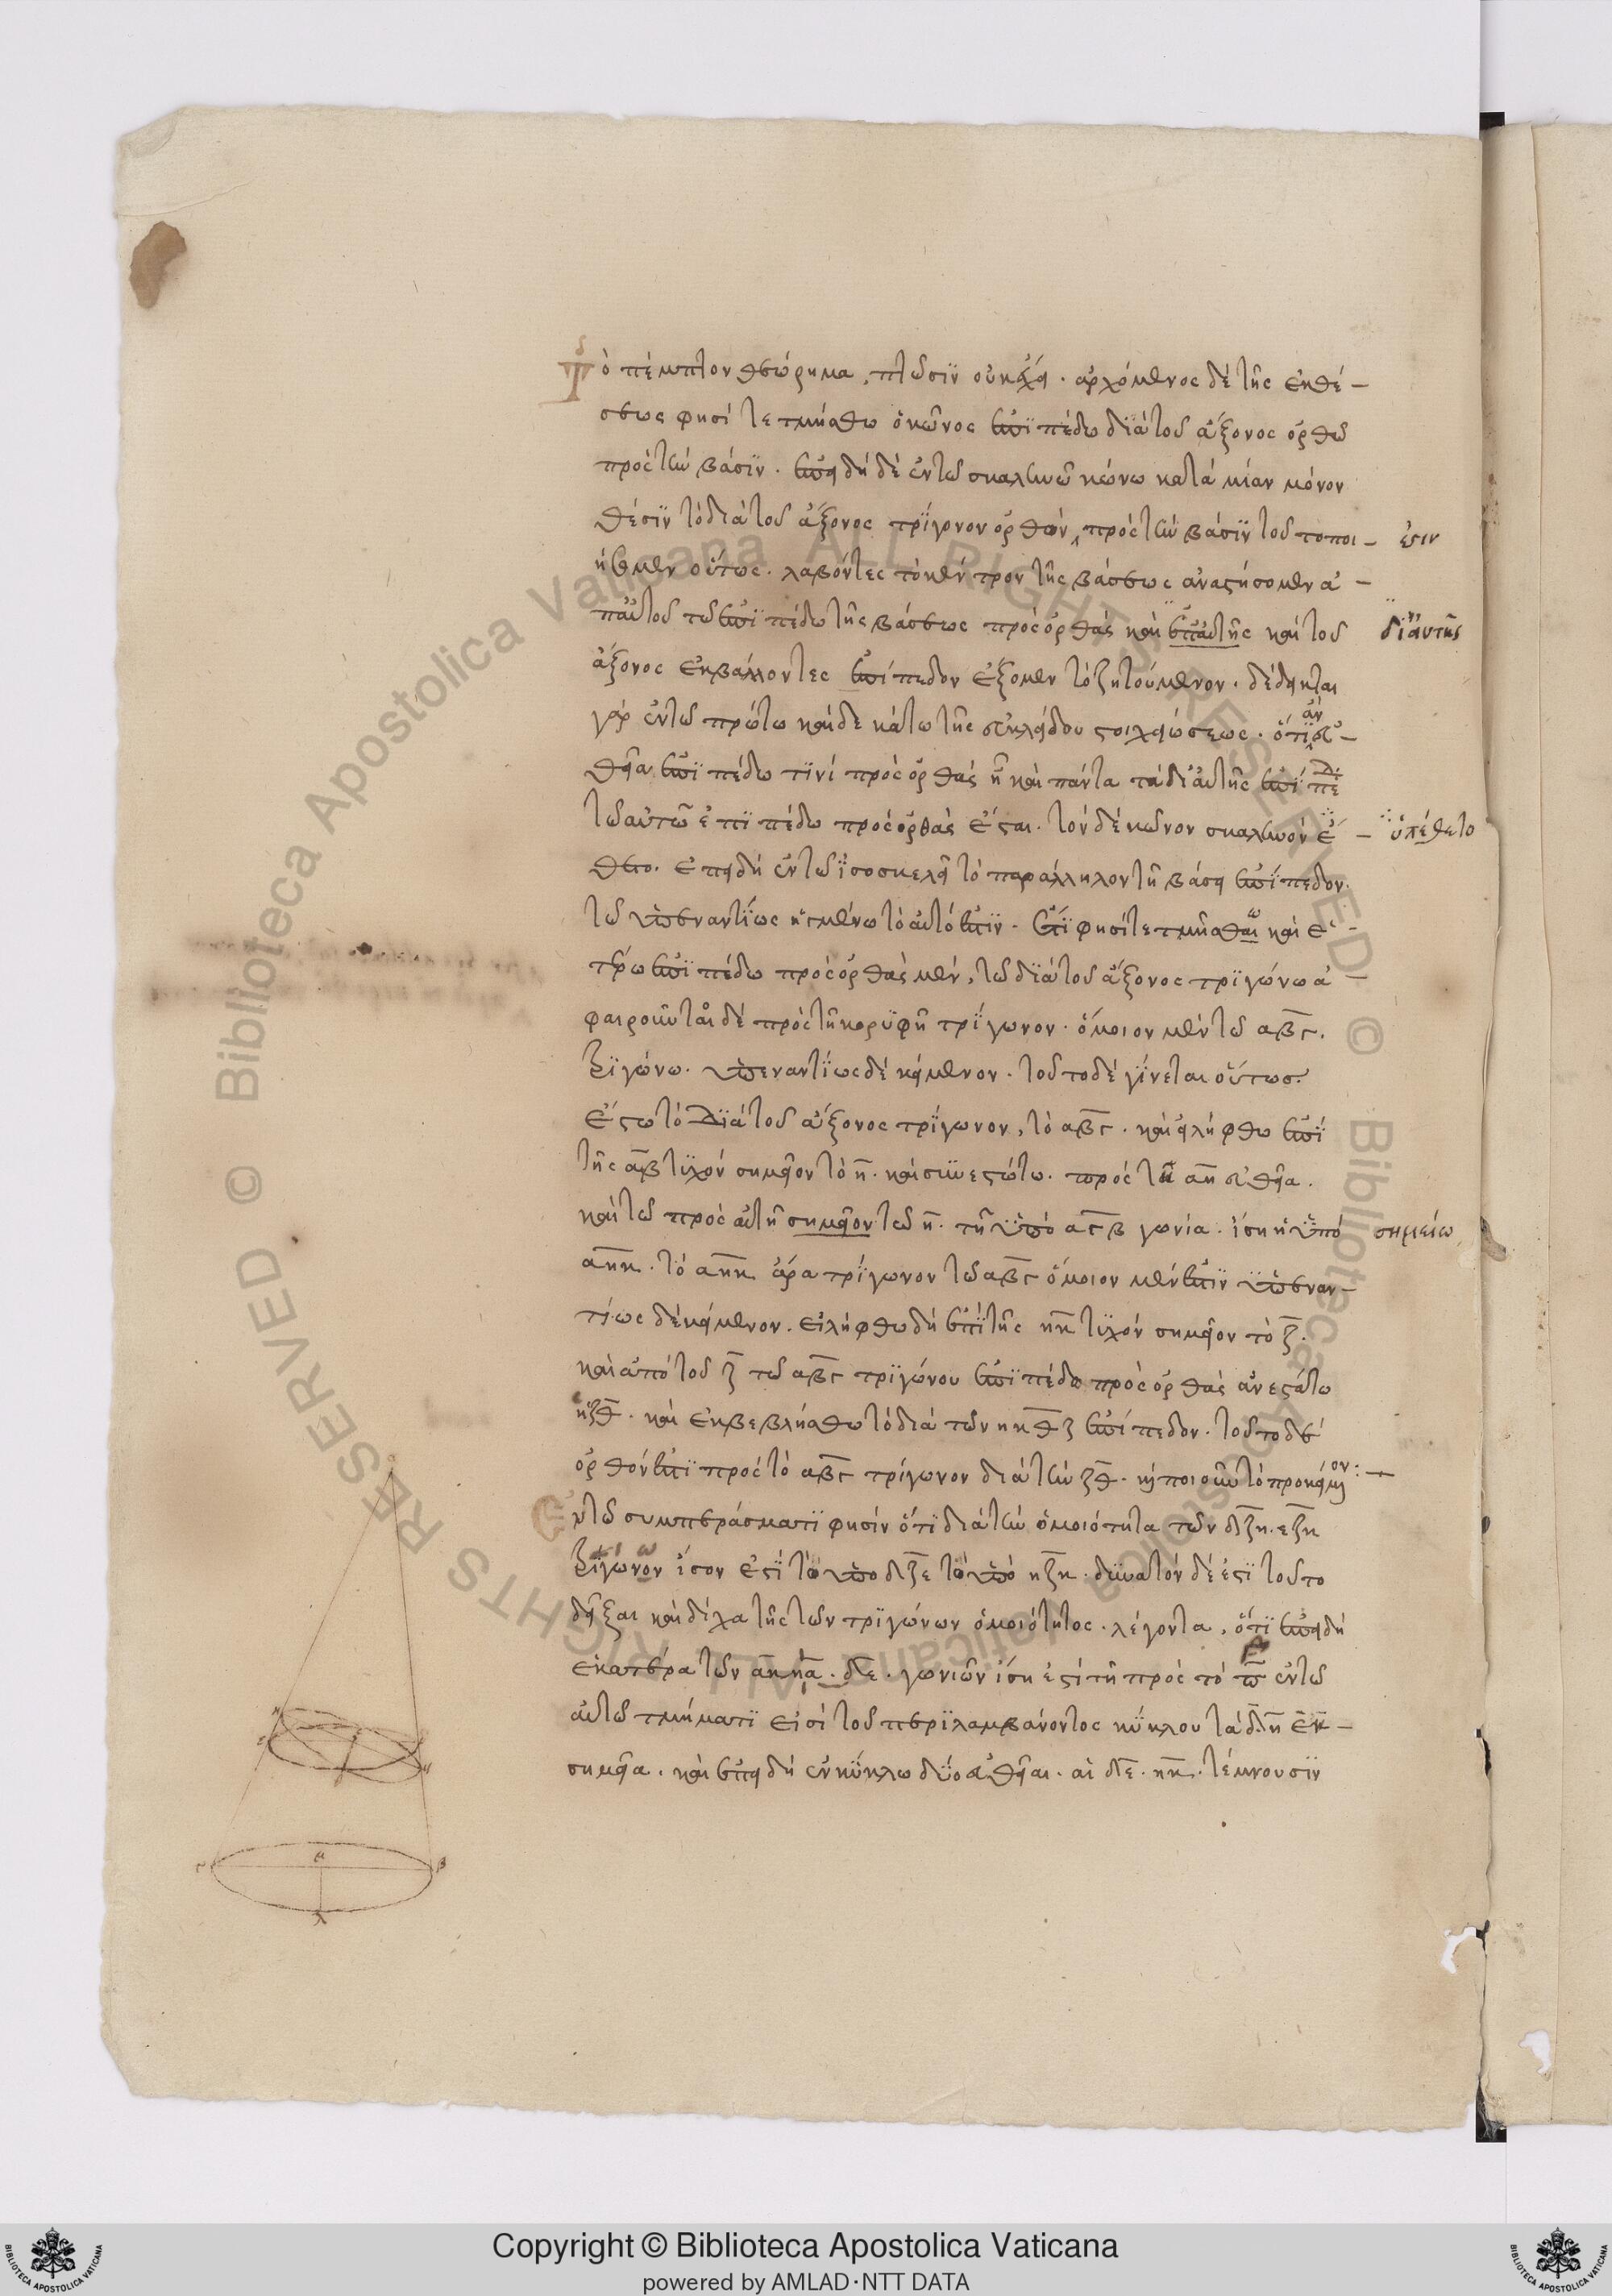 Τὸ πέμπτον θεώρημα, πτῶσιν οὐκ ἔχει. ἀρχόμενος δὲ τῆς ἐκθέ-
σεως φησί τετμήσθω ὁ κῶνος ἐπιπέδω διὰ τοῦ ἄξονος ὀρθῶ
πρὸς τὴν βάσιν. ἐπειδὴ δὲ ἐν τῶ σκαληνῶ κώνω κατὰ μίαν μόνον
θέσιν τὸ διὰ τοῦ ἄξονος τρίγονον ὀρθόν, πρὸς τὴν βάσιν τοῦτο ποι- ἐστιν
ήσομεν οὕτως. λαβόντες τὸ κέντρον τῆς βάσεως ἀναστήσομεν ἀ-
π' αὐτοῦ τῶ ἐπιπέδω τῆς βάσεως πρὸς ὀρθάς καὶ ἐπ' αὐτῆς καὶ τοῦ δι' αὐτῆς
ἄξονος ἐκβάλλοντες ἐπίπεδον ἕξομεν τὸ ζητούμενον. δέδεικται
γὰρ ἐν τῶ πρώτω καὶ δεκάτω τῆς εὐκλείδου στοιχειώσεως. ὅτι ἐὰν εὐ-
θεῖα ἐπιπέδω τινὶ πρὸς ὀρθάς ἦ καὶ πάντα τὰ δι' αὐτῆς ἐπίπεδ
τῶ αὐτῶ ἐπιπέδω πρὸς ὀρθάς ἔσται. τὸν δὲ κῶνον σκαληνὸν ἔ- ὑπέθετο
θετο. ἐπειδὴ ἐν τῶ ἰσοσκελεῖ τὸ παράλληλον τῆ βάσει ἐπίπεδον.
τῶ ὑπεναντίως ἠγμένω τὸ αὐτό ἐστιν. ἔτι φησί τετμῆσθαι καὶ ἑ-
τέρω ἐπιπέδω πρὸς ὀρθάς μέν, τῶ διὰ τοῦ ἄξονος τριγώνω ἀ-
φαιροῦντι δὲ πρὸς τῆ κορυφῆ τρίγωνον. ὅμοιον μὲν τῶ αβγ.
τριγώνω. ὑπεναντίως δὲ κείμενον. τοῦτο δὲ γίνεται οὕτως.
Ἔστω τὸ διὰ τοῦ ἄξονος τρίγωνον, τὸ αβγ. καὶ εἰλήφθω ἐπὶ
τῆς αβ τυχὸν σημεῖον τὸ η. καὶ συνεστάτω. πρὸς τῆ αη εὐθεῖα.
καὶ τῶ πρὸς αὐτῆ σημεῖον τῶ η. τῆ ὑπὸ αγβ γωνία. ἴση ἡ ὑπὸ σημείω
αηκ. τὸ αηκ ἄρα τρίγωνον τῶ αβγ ὅμοιον μέν ἐστιν ὑπεναν-
τίως δὲ κείμενον. εἰλήφθω δὴ ἐπὶ τῆς ηκ τυχὸν σημεῖον τὸ ζ.
καὶ ἀπὸ τοῦ ζ τῶ αβγ τριγώνου ἐπιπέδω πρὸς ὀρθάς ἀνεστάτω
ἡ ζθ. καὶ ἐκβεβλήσθω τὸ διὰ τῶν ηκ θζ ἐπίπεδον. τοῦτο δὲ
ὀρθόν ἐστι πρὸς τὸ αβγ τρίγωνον διὰ τὴν ζθ. καὶ ποιοῦν τὸ προκείμενον:
Ἐν τῶ συμπεράσματι φησίν ὅτι διὰ τὴν ὁμοιότητα τῶν δζη. εζκ
τριγώνων ἴσον ἐστὶ τὸ ὑπὸ δζε τῶ ὑπὸ ηζκ. δυνατὸν δέ ἐστι τοῦτο
δεῖξαι καὶ δίχα τῆς τῶν τριγώνων ὁμοιότητος. λέγοντα, ὅτι ἐπειδὴ
ἑκατέρα τῶν ακηα. δε. γωνιῶν ἴση ἐστὶ τῆ πρὸς τὸ β ἐν τῶ
αὐτῶ τμήματι εἰσὶ τοῦ περιλαμβάνοντος κύκλου τὰ δη εκ-
σημεῖα. καὶ ἐπειδὴ ἐν κύκλω δύο εὐθεῖαι. αἱ δε. ηκ. τέμνουσιν
Copyright © Biblioteca Apostolica Vaticana
powered by AMLAD·NTT DATA